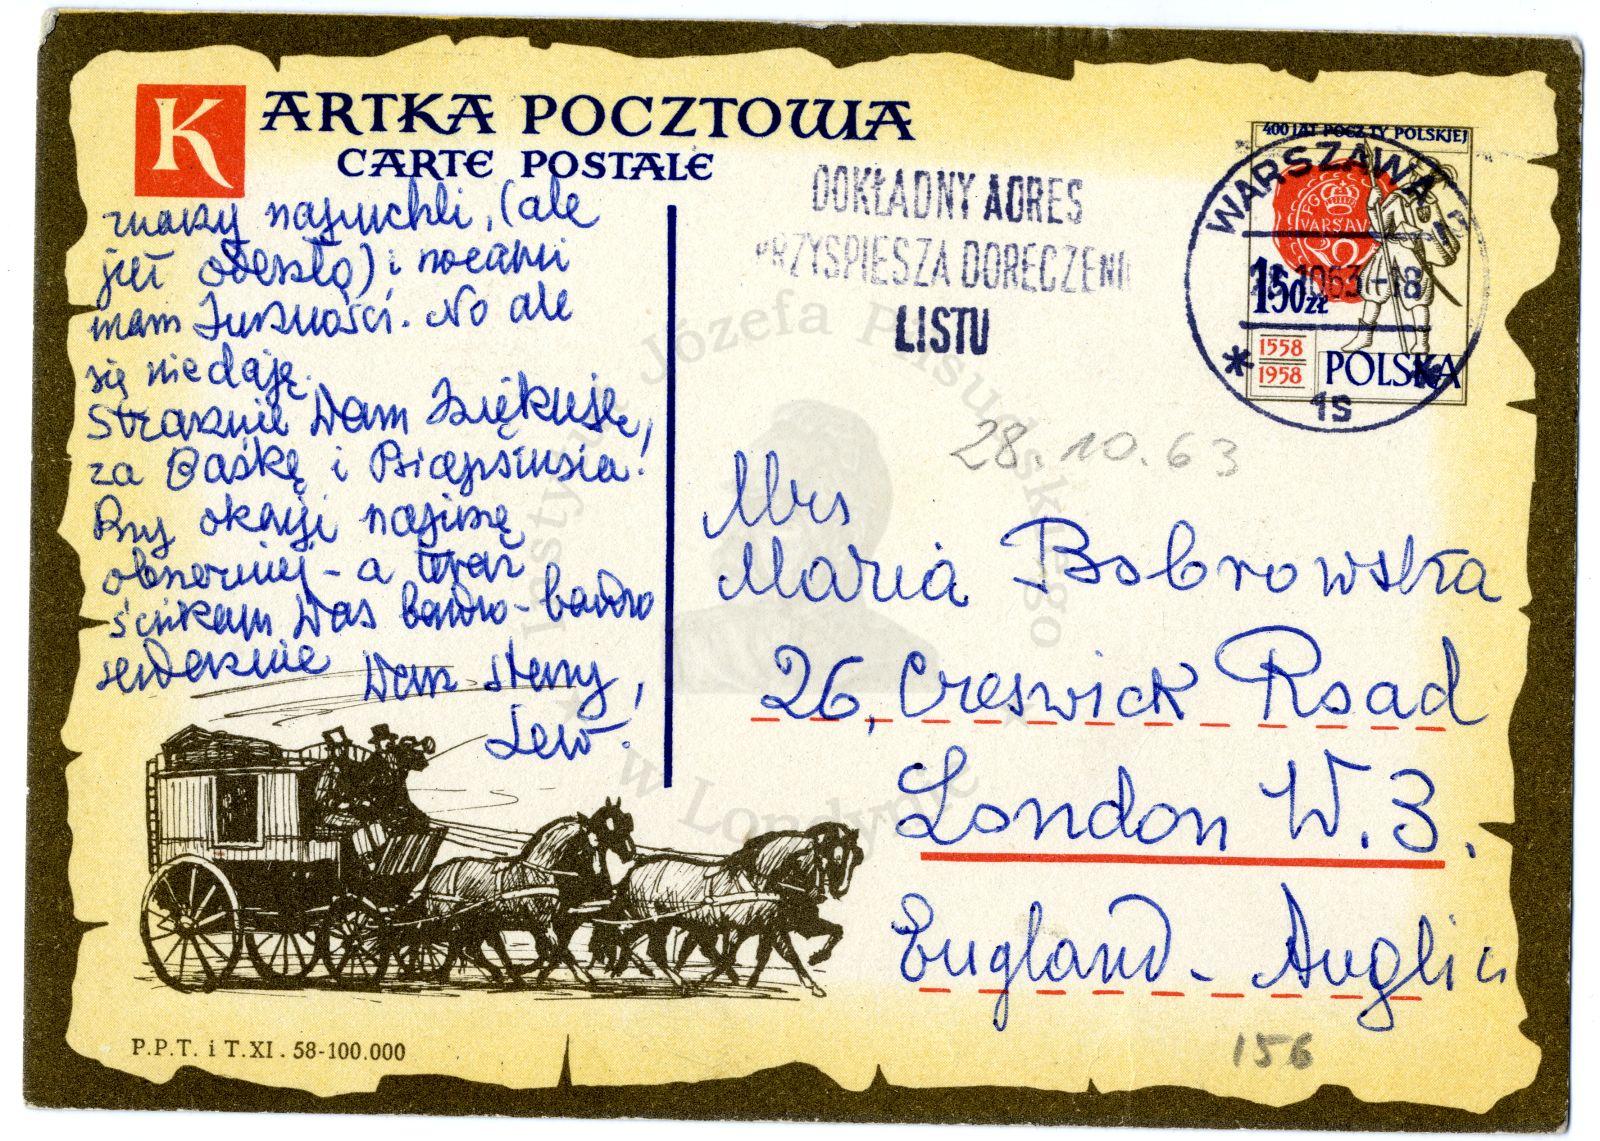 KARTKA POCZTOWA
CARTE POSTALE
DOKŁADNY ADRES
PRZYSPIESZA DORĘCZENI
LISTU
400 LAT POCZTY POLSKIEJ
WARSZAWA
10 63 -18
1s
150 ZŁ
1558
1958
POLSKA
28.10.63
(ale
już odeszło) i nocami
mam duszności. No ale
się nie daję.
Strasznie Wam dziękuję,
za Baśkę i
Przy okazji napiszę
obszerniej - a teraz
ściskam Was bardzo - bardzo
serdecznie
Wasz stary,
Lew.
Mrs
Maria Bobrowska
26, Creswick Road
London W. 3.
England - Anglia
P.P.T. i T.XI. 58-100.000
156
Instytut Józefa Piłsudskiego
w Londynie